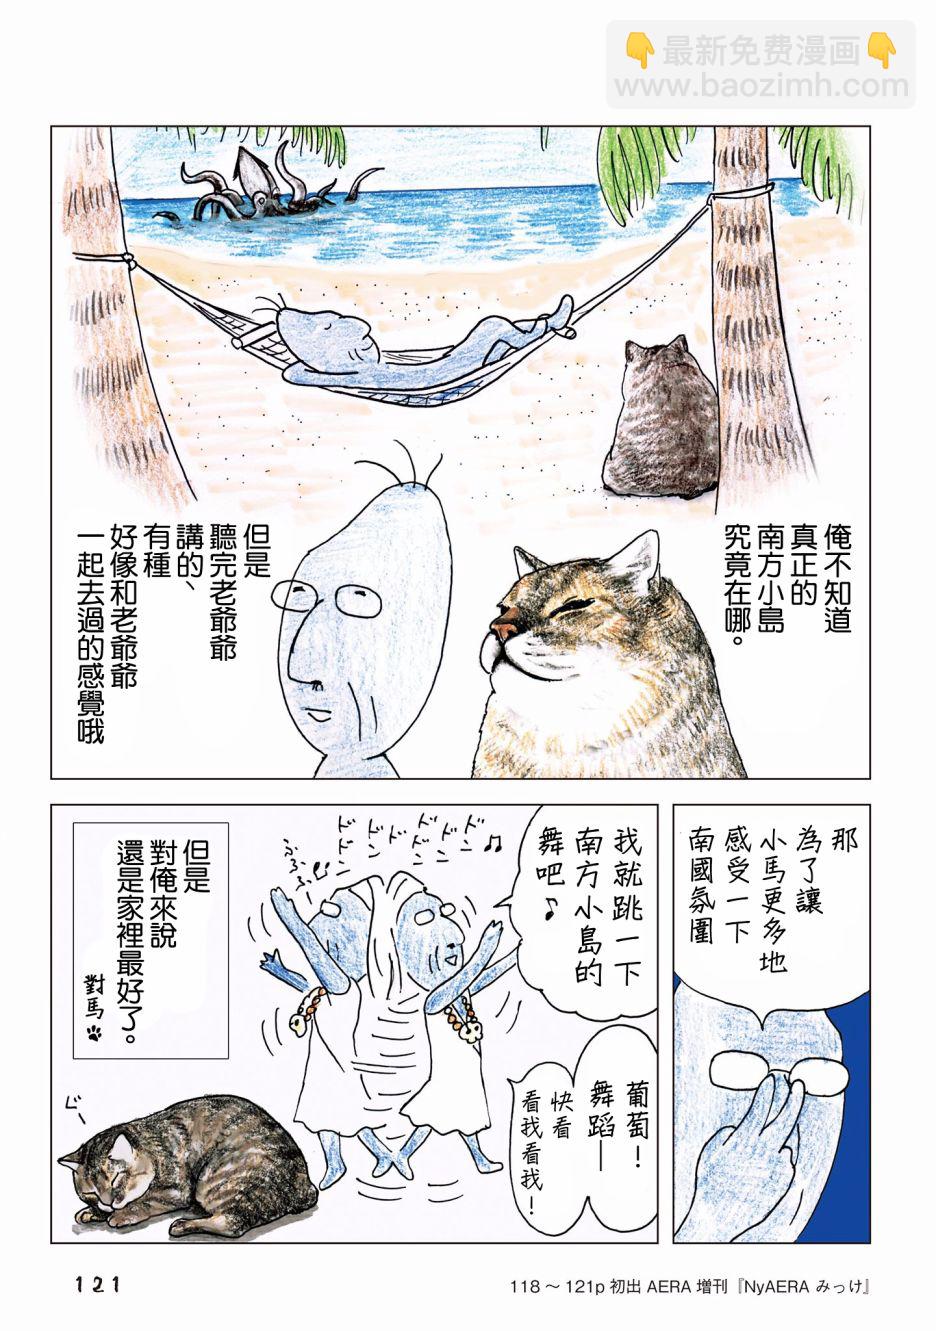 👇最新免费漫画👇
www.baozimh.com
俺不知道
真正的
南方小島
究竟在哪。
但是
聽完老爺爺
講的、
有種
好像和老爺爺
一起去過的感覺哦
那
為了讓
小馬更多地
感受一下
南國氛圍
我就跳一下
南方小島的
舞吧♪
葡萄！
舞蹈—
快看
看我看我！
ドンドンドンドンドン♪
ふふふふ♪
但是
對俺來說
還是家裡最好了。
對馬
じー
121
118～121p 初出 AERA 増刊『NyAERA みっけ』